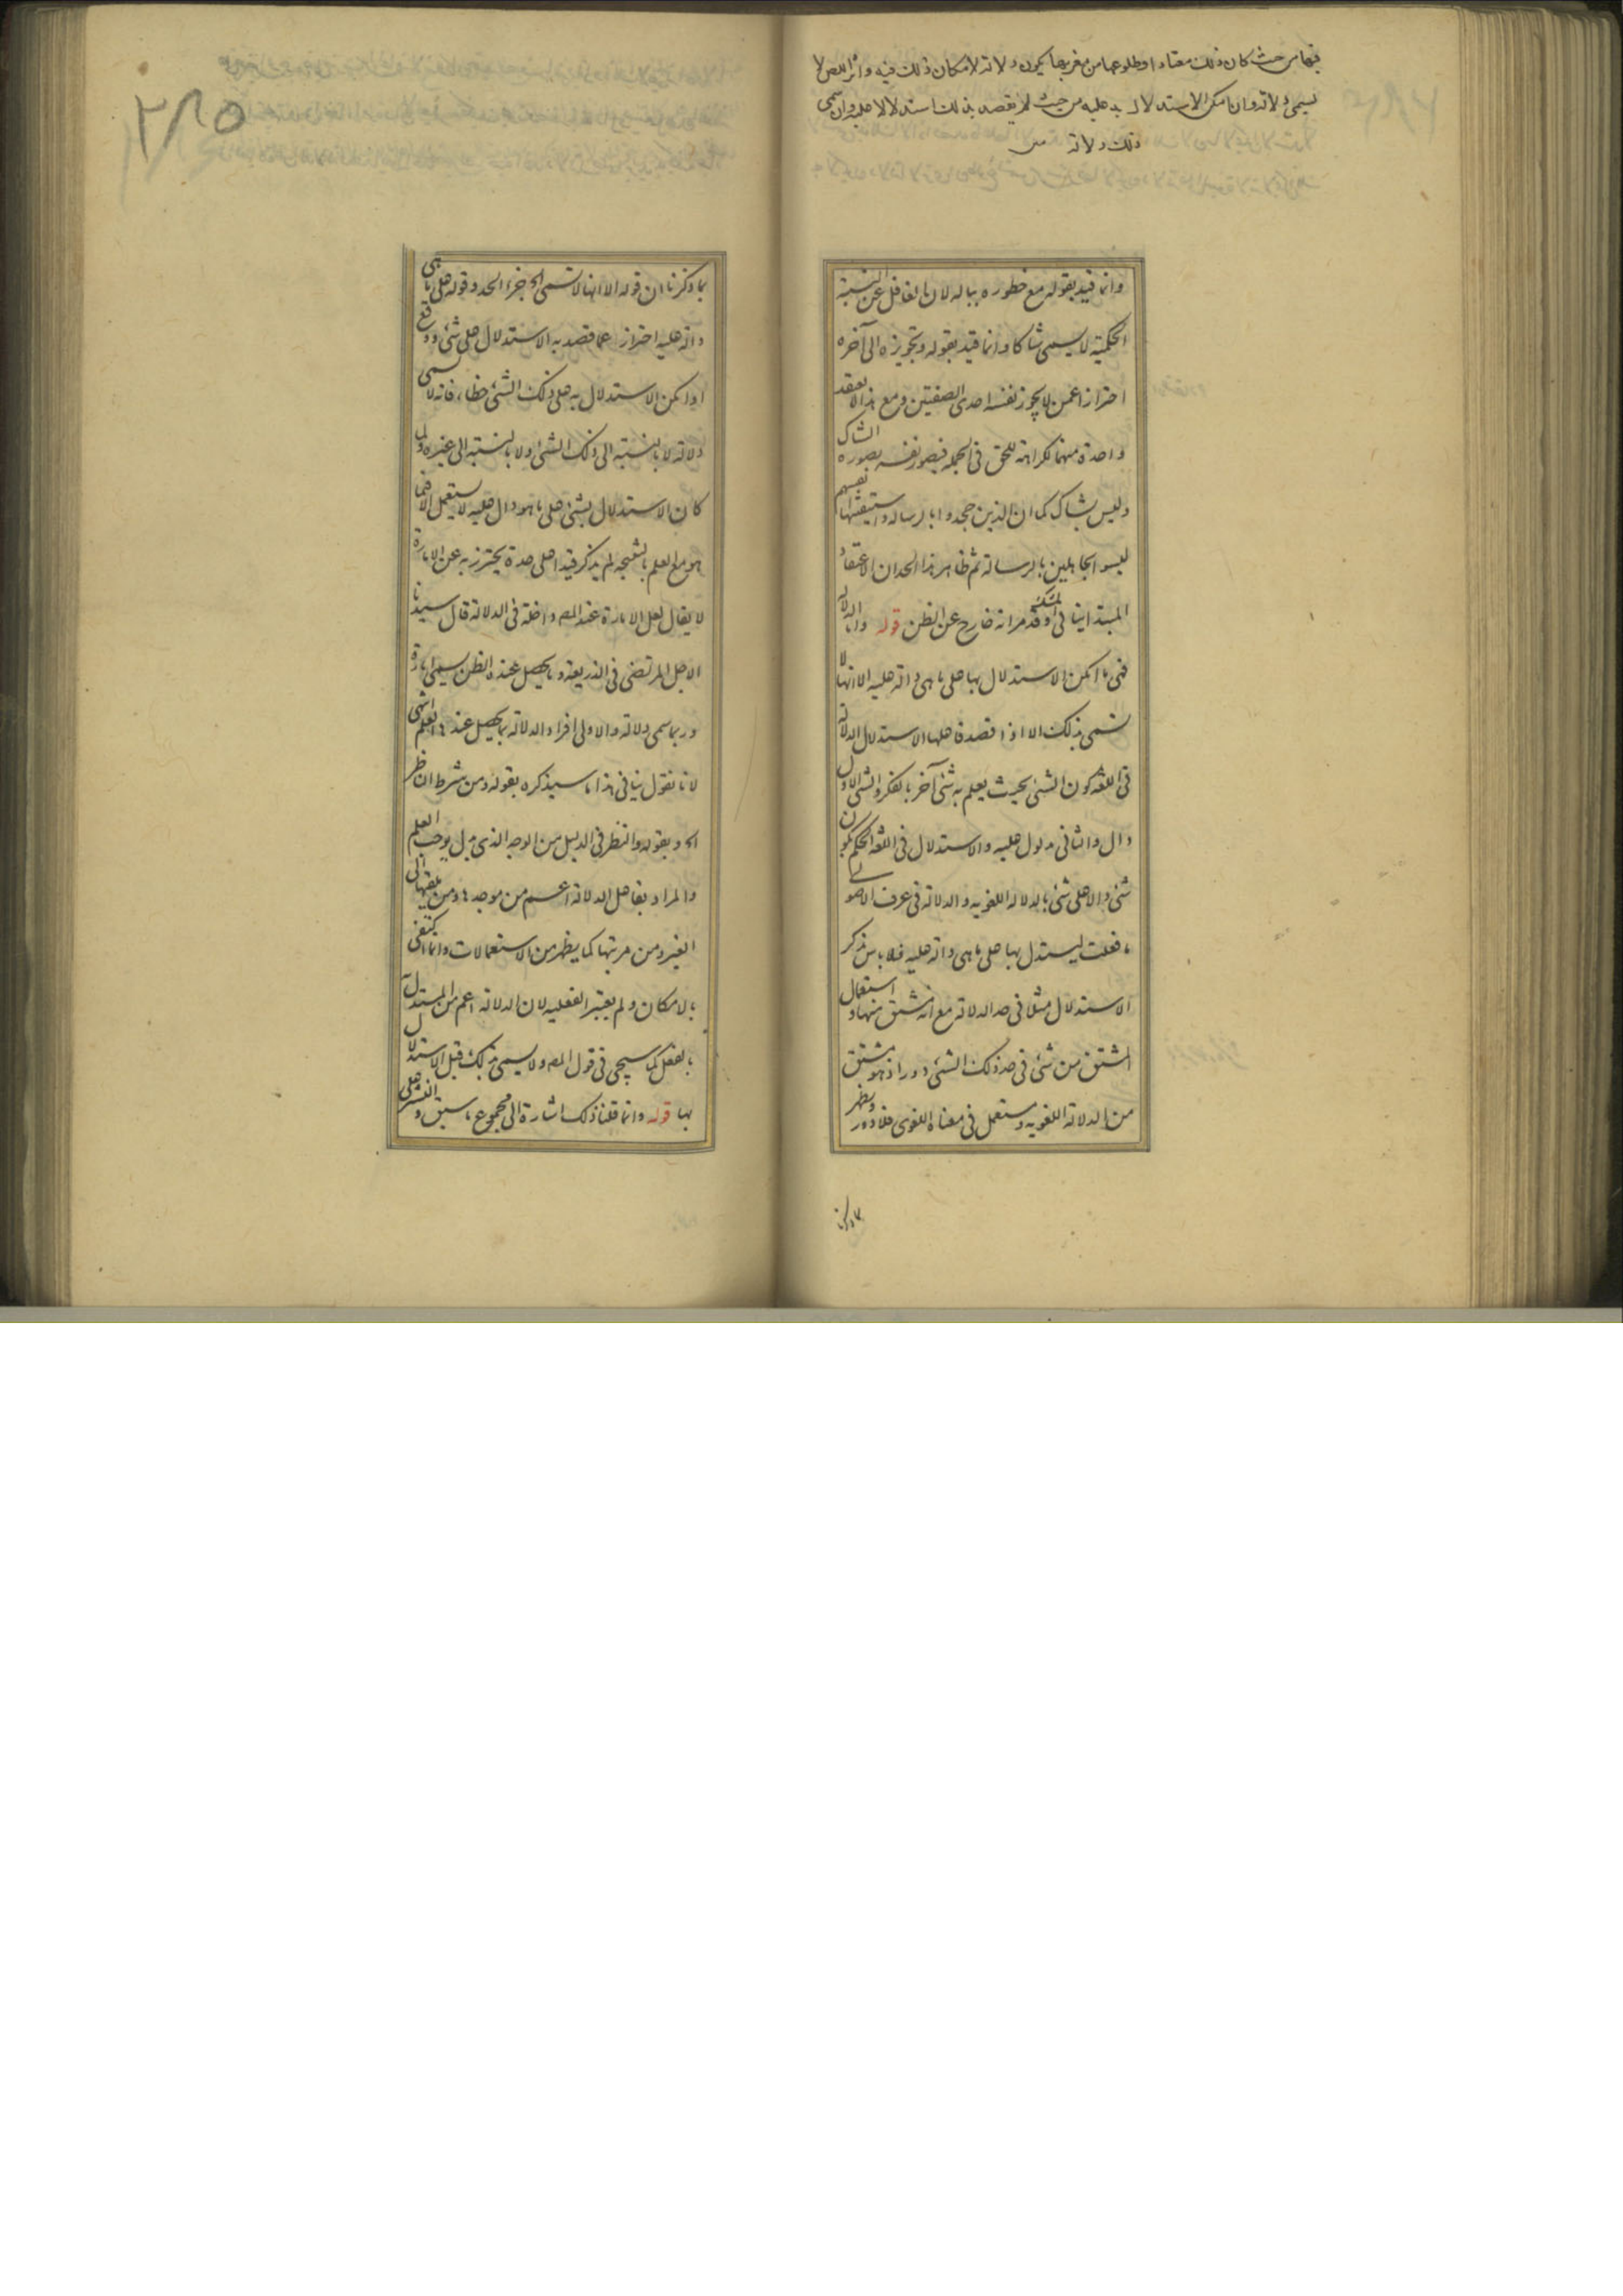 فيها من حيث كان ذلك معتادا وطلوعها من مغربها يكون دلالة لامكان ذلك فيه واثر اللص لا
يسمى دلالة وان امكن الاستدلال به عليه من حيث لم يقصد بذلك استدلالا عليه وان سمى
ذلك دلالة
وانما قيد بقوله مع خطوره بباله لان الغافل عن النسبة
الحكمية لا يسمى شاكا وانما قيد بقوله وتجويزه الى آخره
احترازا عمن لا يجوز نفسه احدى الصفتين ومع هذا لا يعتقد
واحدة منهما لكراهة للحق في الجملة فيصور نفسه بصورة الشاك
وليس بشاك كما ان الذين جحدوا بالرسالة واستيقنتها انفسهم
ليسوا بجاهلين بالرسالة ثم ظاهر هذا الحد ان الاعتقاد
المبتدا ينافى الشك وقد مر انه خارج عن الظن قوله واما الدلالة
فهى ما امكن الاستدلال بها على ما هى دالة عليه الا انها لا
تسمى بذلك الا اذا قصد فاعلها الاستدلال الدلالة
فى اللغة كون الشئ بحيث يعلم به شئ آخر بالفكر والشئ الاول
دال والثانى مدلول عليه والاستدلال فى اللغة الحكم بكون
شئ دالا على شئ بالدلالة اللغوية والدلالة فى عرف الاصولى
ما فعلت ليستدل بها على ما هى دالة عليه فلا باس بذكر
الاستدلال مثلا فى حد الدلالة مع انه مشتق منها واستعمال
المشتق من شئ فى حد ذلك الشئ دور اذ هو مشتق
من الدلالة اللغوية ومستعمل فى معناه اللغوى فلا دور ويظهر
مما ذكرنا
٢٨٥
مما ذكرنا ان قوله الا انها لا تسمى الخ جزء الحد وقوله على ما هى
دالة عليه احتراز عما قصد به الاستدلال على شئ ووقع
او امكن الاستدلال به على ذلك الشئ خطاء فانه لا يسمى
دلالة لا بالنسبة الى ذلك الشئ ولا بالنسبة الى غيره ولما
كان الاستدلال بشئ على ما هو دال عليه لا يستعمل الا فيما
هو مع العلم بالنتيجة لم يذكر قيدا على حدة يحترز به عن الامارة
لا يقال لعل الامارة عند المص داخلة فى الدلالة قال سيدنا
الاجل المرتضى فى الذريعة وما يحصل عنده الظن يسمى امارة
وربما سمى دلالة والاولى افراد الدلالة بما يحصل عنده العلم انتهى
لانا نقول ينافى هذا ما سيذكره بقوله ومن شرط الناظر
الخ وبقوله والنظر فى الدليل من الوجه الذى يدل يوجب العلم
والمراد بفاعل الدلالة اعم من موجدها ومن يلقيها الى
الغير ومن مرتبها كما يظهر من الاستعمالات وانما اكتفى
بالامكان ولم يعتبر الفعلية لان الدلالة اعم من المستدل به
بالفعل كما سيجئ فى قول المص ولا يسمى بذلك قبل الاستدلال
بها قوله وانما قلنا ذلك اشارة الى مجموع ما سبق و